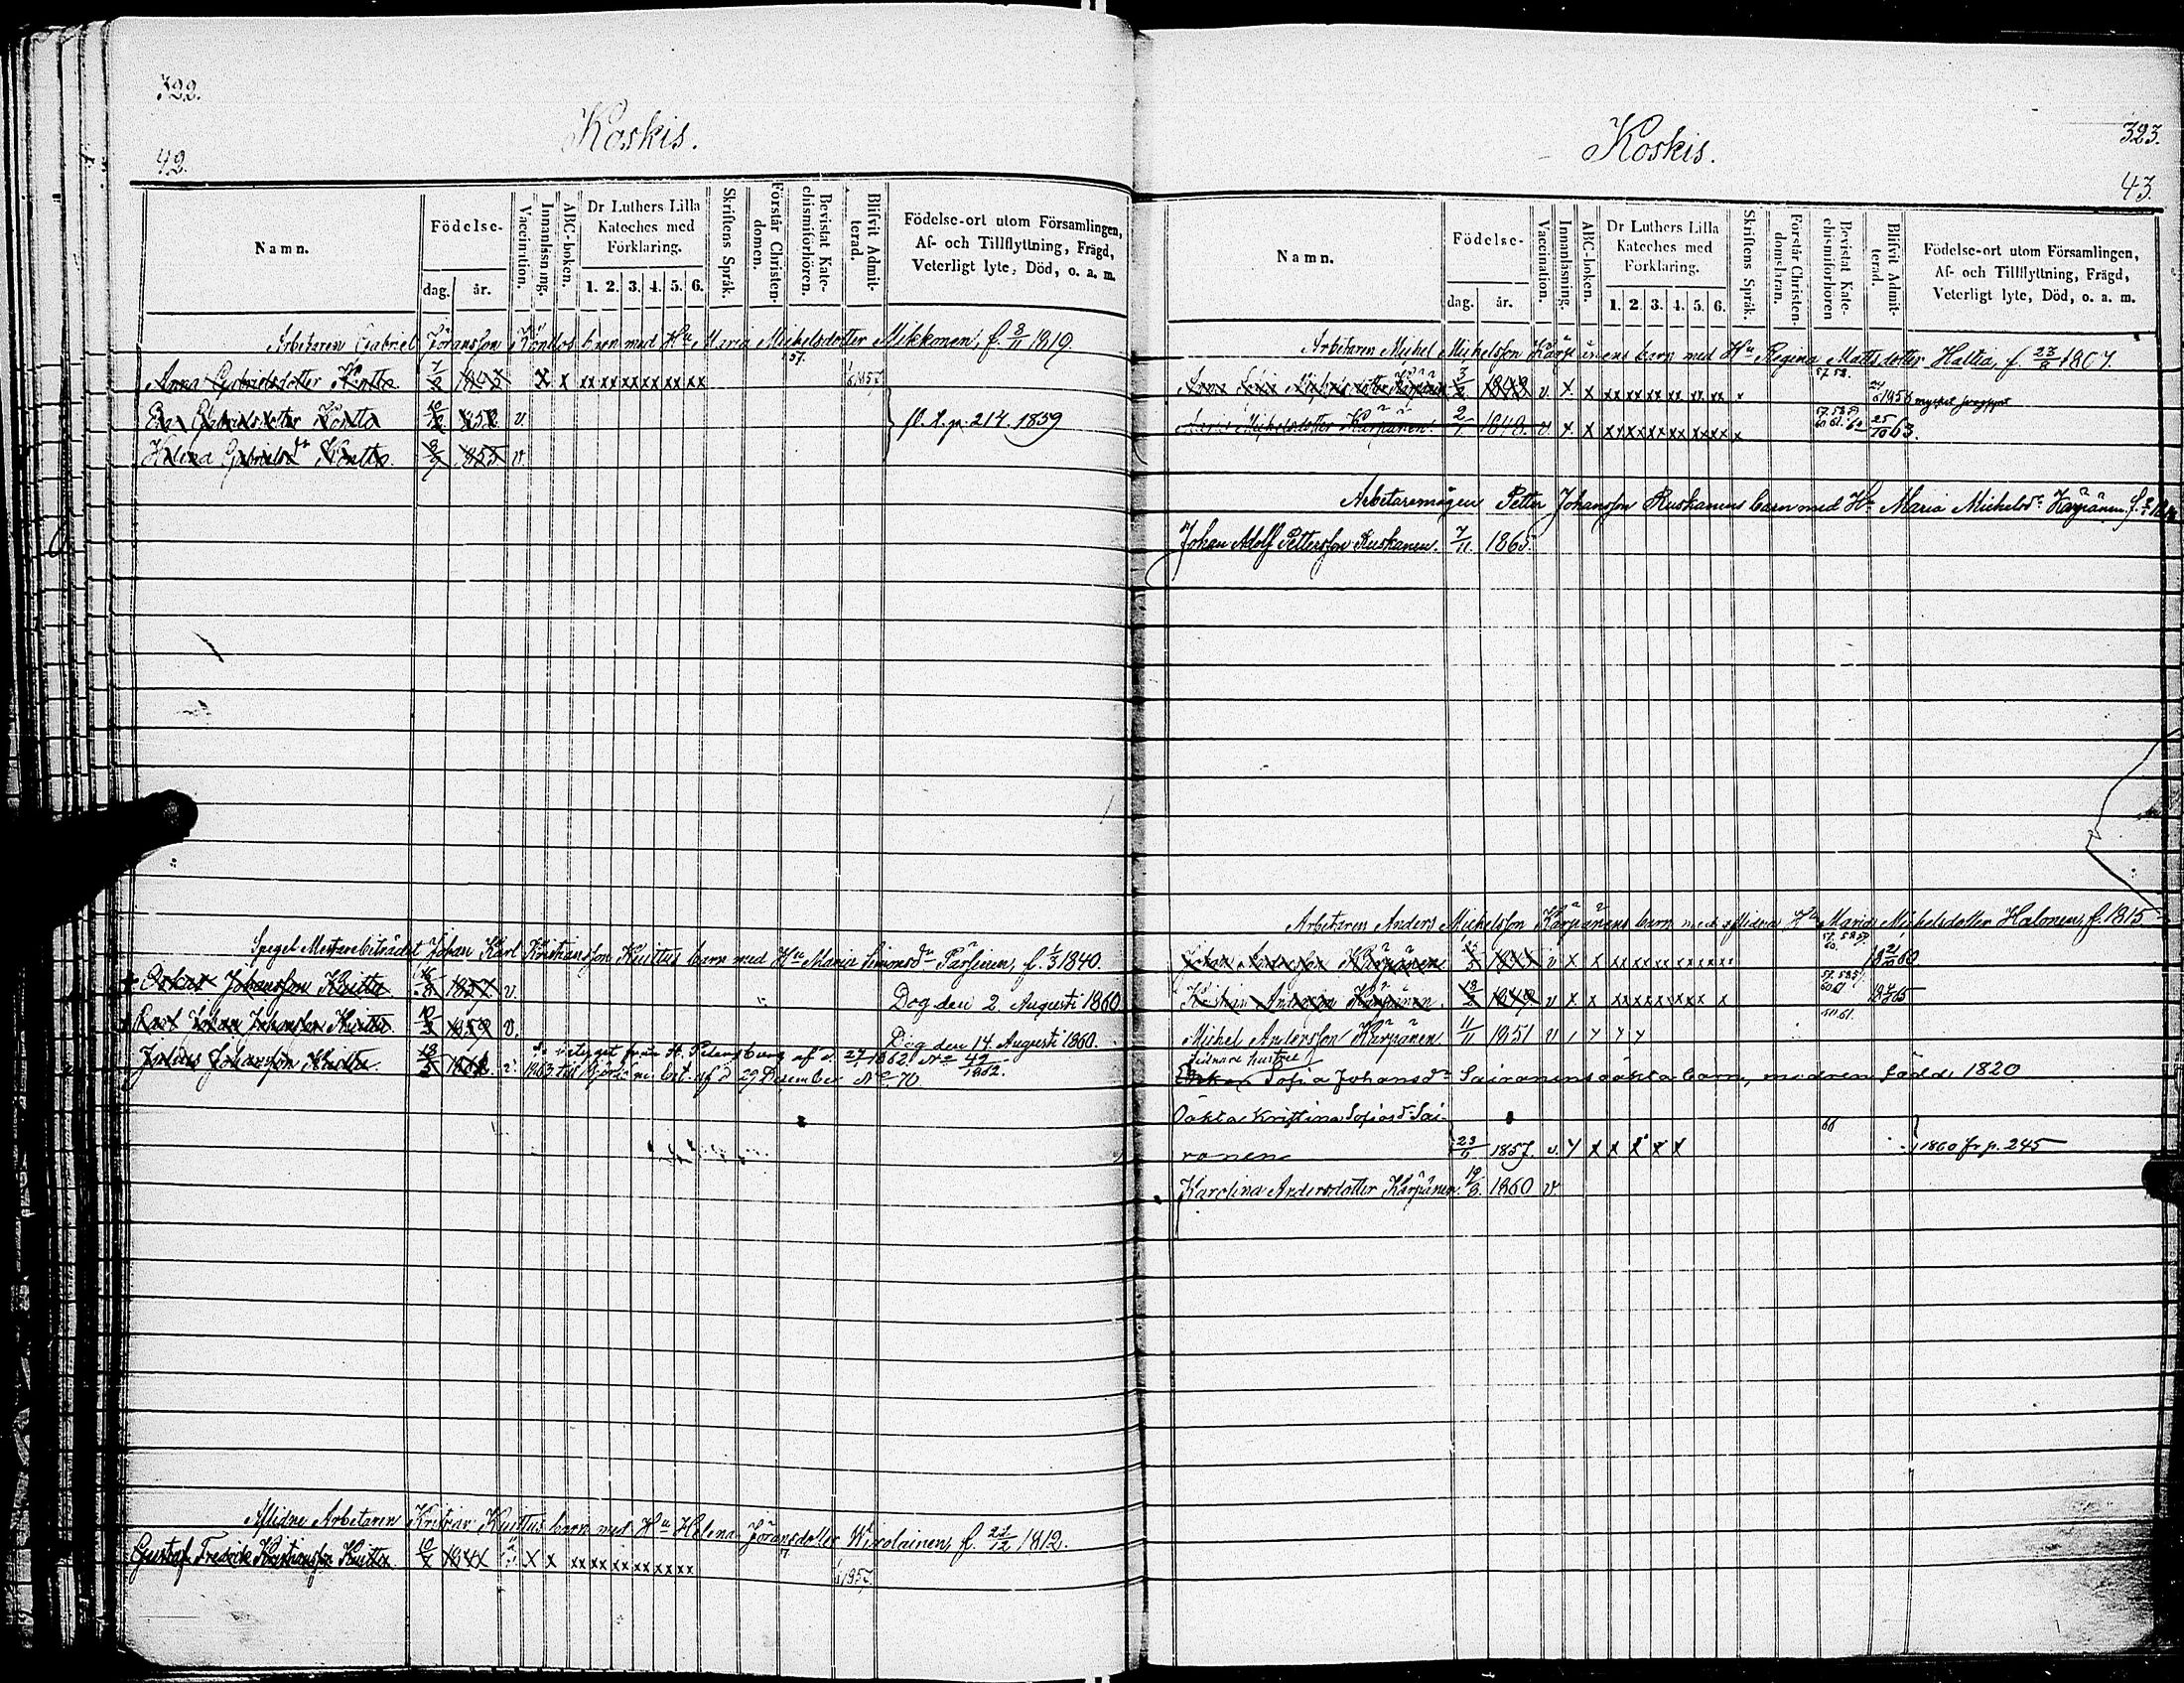 322.
Koskis.
42.
Namn.
Födelse-
dag. år.
Vaccination.
Innanläsning.
ABC-boken.
Dr Luthers Lilla Kateches med Förklaring.
1. 2. 3. 4. 5. 6.
Skriftens Språk.
Förstår Christendomen.
Bevistat Katechismiförhören.
Blifvit Admitterad.
Födelse-ort utom Församlingen, Af- och Tillflyttning, Frägd, Veterligt lyte, Död, o. a. m.
Arbetaren Gabriel Jöransson Konttos barn med Hu Maria Michelsdotter Mikkonen, f. 8/11 1819.
Anna Gabrielsdotter Kontto x x xx xx xx xx xx xx 57. 1857
Eva Gabrielsdotter Kontto 1852 v.
Helena Gabrielsdr Kontto 1855 v.
fl. t. p. 214 1859
Spegel Mästarebiträdet Johan Karl Kristiansson Kuittus barn med Hu Maria Simonsdr Pärsinen, f. 1/3 1840.
Oskar Johansson Kuitto 1857. v. Dog den 2. Augusti 1860
Karl Johan Johansson Kuitto 1859 v. Dog den 14. Augusti 1860.
Julius Johansson Kuitto v. betyget från St. Petersburg af d. 27/ 1862 No 49/1862.
1863 till af d 29 Desember No 70
Aflidne Arbetaren Kristian Kuittus barn med Hu Helena Jöransdotter Wirolainen, f. 22/12 1812.
Gustaf Fredrik Kristiansson Kuitto x x xx xx xx xx xx xx 1857
323.
Koskis.
43.
Namn.
Födelse-
dag. år.
Vaccination.
Innanläsning.
ABC-boken.
Dr Luthers Lilla Kateches med Förklaring.
1. 2. 3. 4. 5. 6.
Skriftens Språk.
Förstår Christendomsläran.
Bevistat Katechismiförhören
Blifvit Admitterad.
Födelse-ort utom Församlingen, Af- och Tillflyttning, Frägd, Veterligt lyte, Död, o. a. m.
Arbetaren Michel Michelsson Kärpänens barn med Hu Regina Mattsdotter Haltia, f. 1807.
Anna Michelsdotter Kärpänen v. x. x xx xx xx xx xx xx x 57. 58. 1858 mycket
Maria Michelsdotter Kärpänen 2/7 1848. v. x. x xx xx xx xx xx xx x 25/10 63.
Arbetaremågen Petter Johansson Ruskanens barn med Hu Maria Michelsdr Kärpänen, f.
Johan Adolf Pettersson Ruskanen. 7/11. 1865.
Arbetaren Anders Michelsson Kärpänens barn med aflidna Hu Maria Michelsdotter Halonen, f. 1815
Johan Andersson Kärpänen v x x xx xx xx xx xx xx 60
Kristian Andersson Kärpänen. 1849 v x x xx xx xx xx x 65
Michel Andersson Kärpänen 11/11 1851 v
sednare hustru
Sofia Johansdr Sairanens oäkta barn, modren född 1820
Oäkta Kristina Sofiasdr Sai-
ranen 23/6 1857. v. x x x x x x 1860 fr p. 245
Karolina Andersdotter Kärpänen. 1860 v